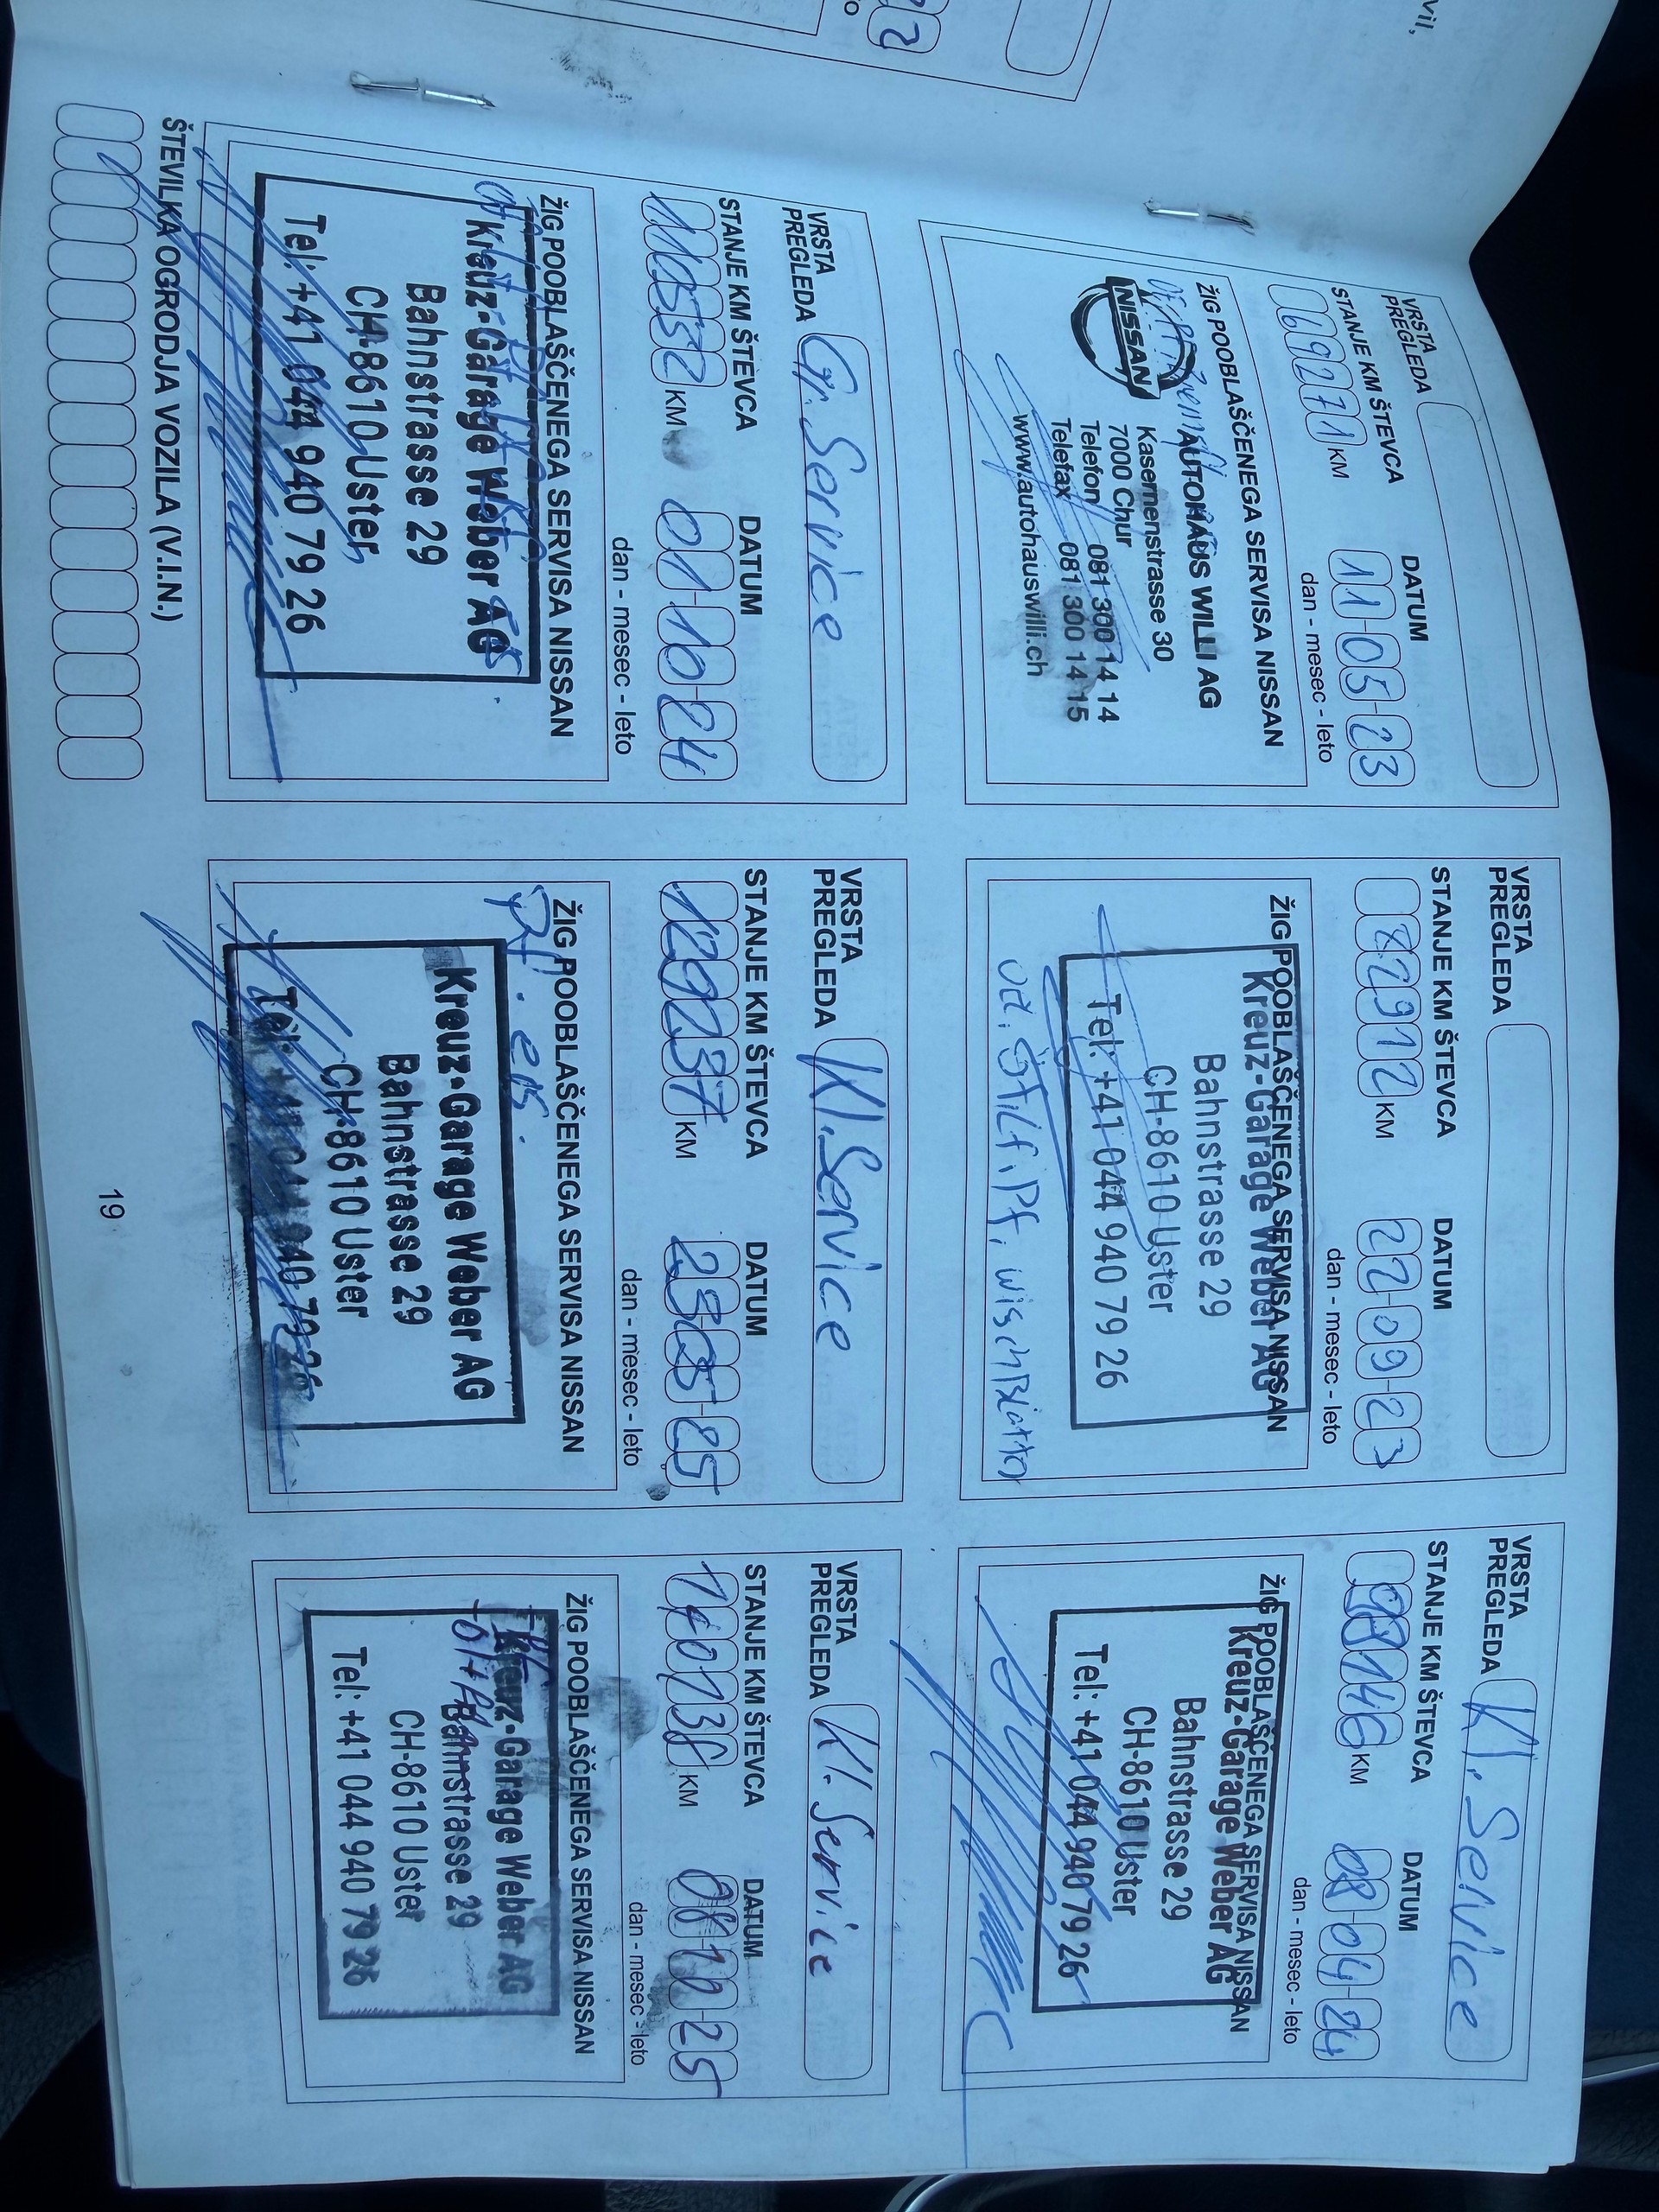 VRSTA
PREGLEDA
STANJE KM ŠTEVCA DATUM
69271 KM 11-05-23
dan - mesec - leto
ŽIG POOBLAŠČENEGA SERVISA NISSAN
NISSAN
AUTOHAUS WILLI AG
Kasernenstrasse 30
7000 Chur
Telefon 081 300 14 14
Telefax 081 300 14 15
www.autohauswilli.ch
VRSTA
PREGLEDA
STANJE KM ŠTEVCA DATUM
82912 KM 22-09-23
dan - mesec - leto
ŽIG POOBLAŠČENEGA SERVISA NISSAN
Kreuz-Garage Weber AG
Bahnstrasse 29
CH-8610 Uster
Tel: +41 044 940 79 26
VRSTA
PREGLEDA Kl. Service
STANJE KM ŠTEVCA DATUM
KM 08-04-24
dan - mesec - leto
ŽIG POOBLAŠČENEGA SERVISA NISSAN
Kreuz-Garage Weber AG
Bahnstrasse 29
CH-8610 Uster
Tel: +41 044 940 79 26
VRSTA
PREGLEDA Gr. Service
STANJE KM ŠTEVCA DATUM
110532 KM 01-10-24
dan - mesec - leto
ŽIG POOBLAŠČENEGA SERVISA NISSAN
Kreuz-Garage Weber AG
Bahnstrasse 29
CH-8610 Uster
Tel: +41 044 940 79 26
VRSTA
PREGLEDA Kl. Service
STANJE KM ŠTEVCA DATUM
129237 KM 23-05-25
dan - mesec - leto
ŽIG POOBLAŠČENEGA SERVISA NISSAN
Kreuz-Garage Weber AG
Bahnstrasse 29
CH-8610 Uster
Tel: +41 044 940 79 26
VRSTA
PREGLEDA Kl. Service
STANJE KM ŠTEVCA DATUM
140138 KM 08-10-25
dan - mesec - leto
ŽIG POOBLAŠČENEGA SERVISA NISSAN
Kreuz-Garage Weber AG
Bahnstrasse 29
CH-8610 Uster
Tel: +41 044 940 79 26
ŠTEVILKA OGRODJA VOZILA (V.I.N.)
19